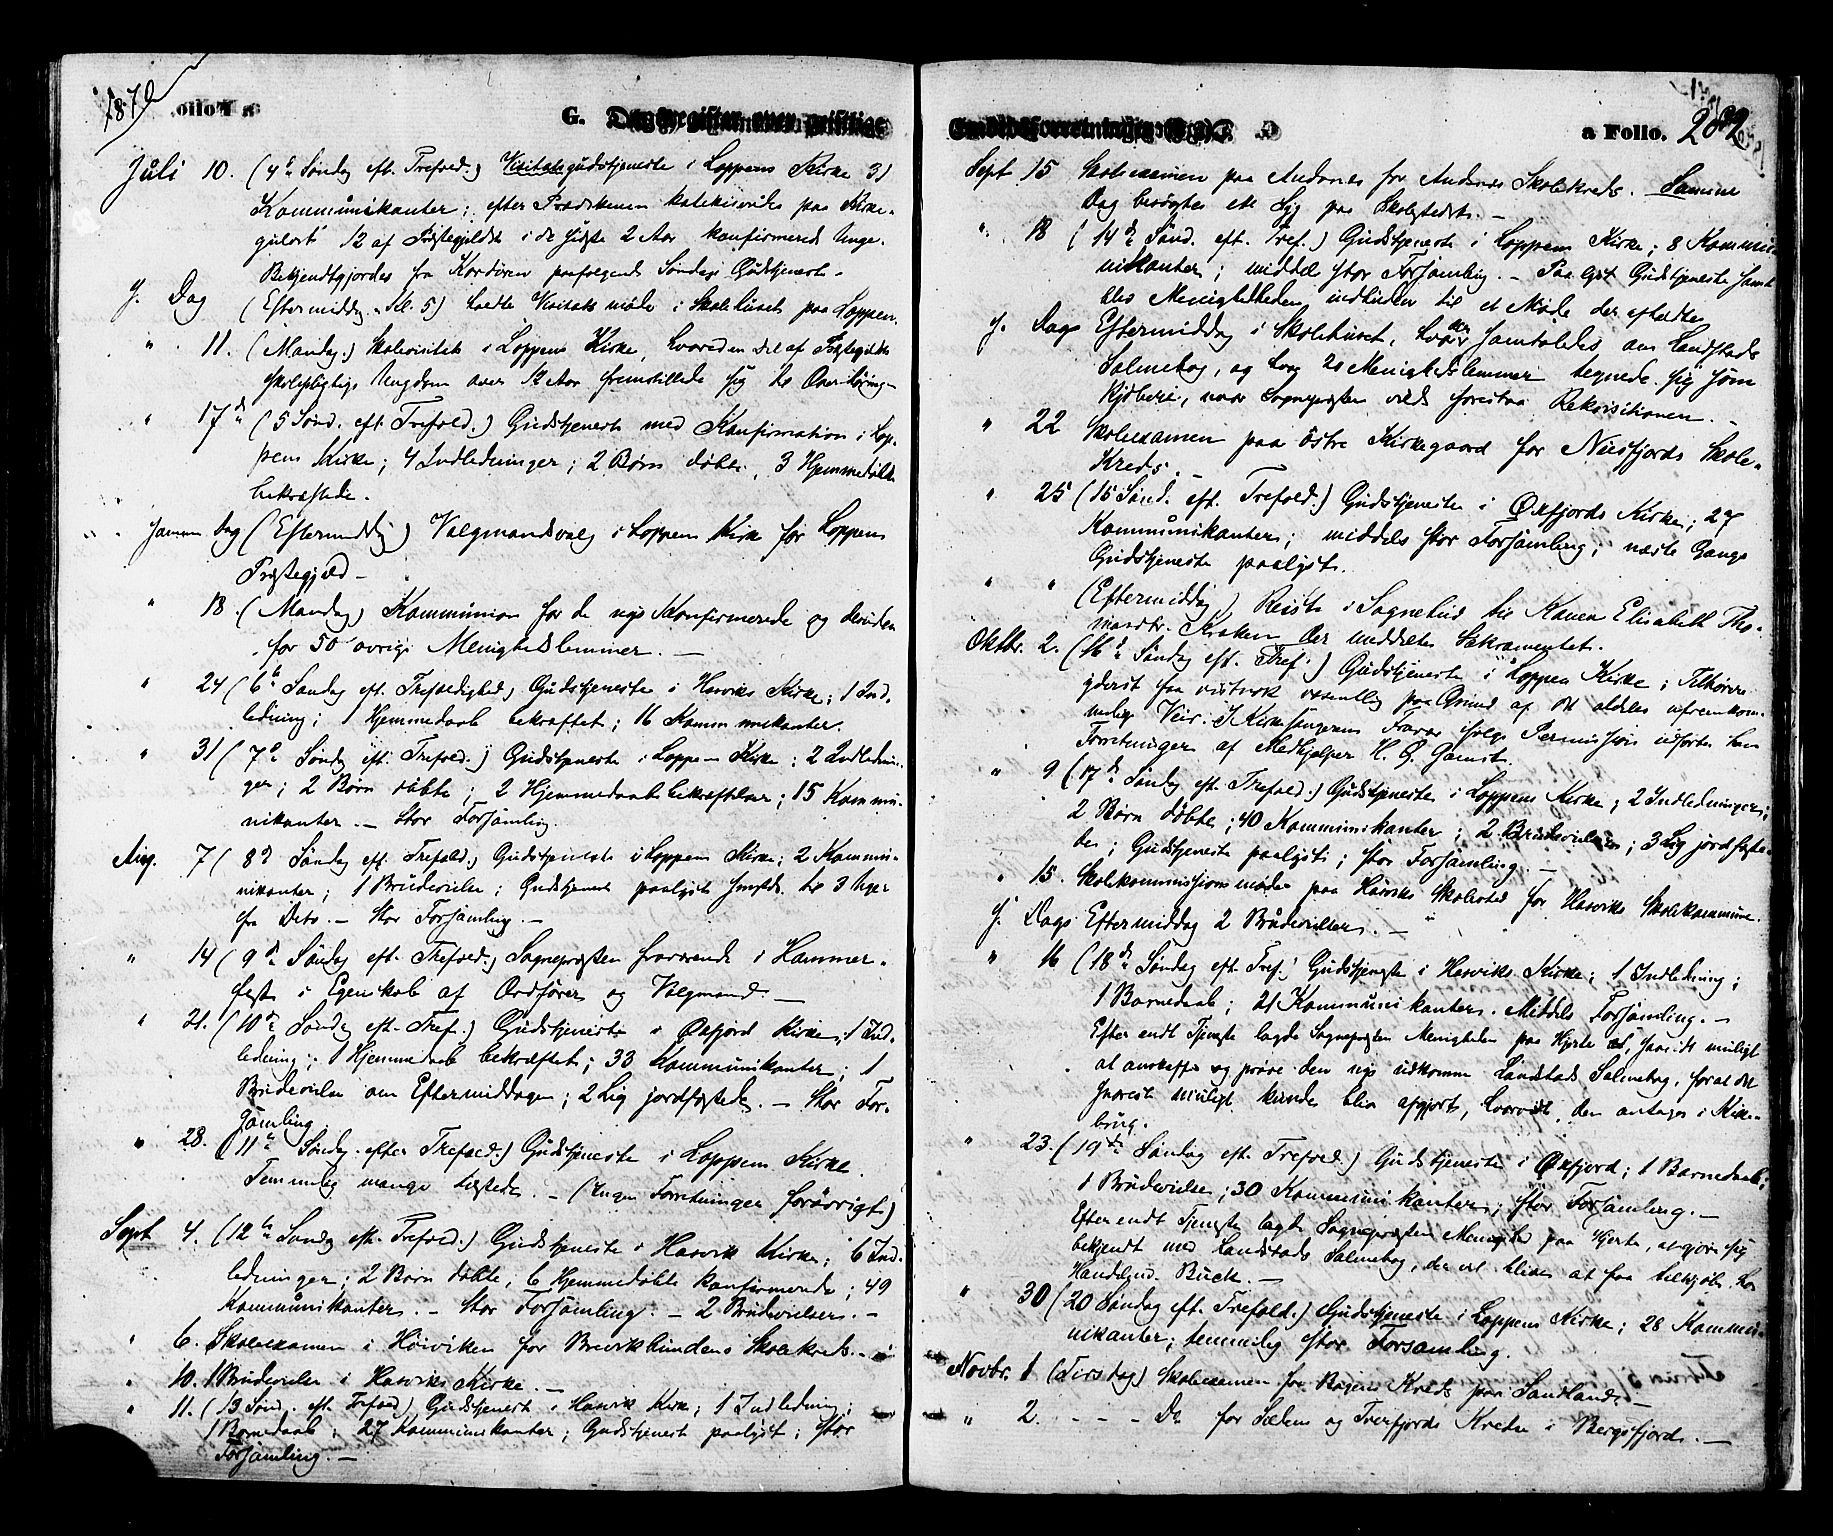 1870
a Folio.
G. Dagregister over geistlige
Juli 10. (4de Søndag eft. Trefold.) Visitatsgudstjeneste i Loppens Kirke 31
Kommunikanter; efter Prædikenen katekiseredes paa Kirke-
gulvet 12 af Præstegjeldets i de sidste 2 Aar konfirmerede Unge.
Bekjendtgjordes fra Kordøren paafølgende Søndags Gudstjeneste.
s. Dag (Eftermiddag Kl. 5) holdtes Visitatsmøde i Skolehuset paa Loppen.
" 11. (Mandag.) Skolevisitats i Loppens Kirke, hvorved en Del af Præstegjeldets
skolepligtige Ungdom over 12 Aar fremstillede sig til Overhøring.
" 17de (5 Sønd. eft. Trefold.) Gudstjeneste med Konfirmation i Lop-
pens Kirke; 4 Indledninger; 2 Børn døbte, 3 Hjemmedøbte
bekræftede.
" samme Dag (Eftermiddag) Valgmandsvalg i Loppens Kirke for Loppens
Præstegjeld.
" 18. (Mandag) Kommunion for de nys Konfirmerede og desuden
for 50 øvrige Menighedslemmer. —
" 24 (6te Søndag eft. Trefoldighed) Gudstjeneste i Hasviks Kirke; 1 Ind-
ledning; 1 Hjemmedaab bekræftet; 16 Kommunikanter.
" 31 (7de Søndag eft. Trefold.) Gudstjeneste i Loppens Kirke; 2 Indlednin-
ger; 2 Børn døbte; 2 Hjemmedaab bekræftelser; 15 Kommu-
nikanter. — Stor Forsamling.
Aug. 7 (8de Søndag eft. Trefold.) Gudstjeneste i Loppens Kirke; 2 Kommu-
nikanter; 1 Brudevielse; Gudstjeneste paalyst til 3 Uger
fra Dato. — Stor Forsamling. —
" 14 (9de Søndag eft. Trefold.) Sognepræsten fraværende i Hammer-
fest i Egenskab af Ordfører og Valgmand. —
" 21. (10de Søndag eft. Tref.) Gudstjeneste i Øxfjord Kirke; 1 Ind-
ledning; 1 Hjemmedaab bekræftet; 33 Kommunikanter; 1
Brudevielse om Eftermiddagen; 2 Lig jordfæstede. — Stor For-
samling.
" 28. (11te Søndag efter Trefold.) Gudstjeneste i Loppens Kirke.
Temmelig mange tilstede. — (Ingen Forretninger forøvrigt)
Sept 4. (12te Søndag eft. Trefold.) Gudstjeneste i Hasvik Kirke; 6 Ind-
ledninger; 2 Børn døbte, 6 Hjemmedøbte konfirmerede; 49
Kommunikanter. — Stor Forsamling. — 2 Brudevielser. —
" 6. Skolexamen i Høiviken for Breviksbundens Skolekreds. —
" 10. 1 Brudevielse i Hasviks Kirke. —
" 11. (13 Sønd. eft. Trefold) Gudstjeneste i Hasvik Kirke; 1 Indledning;
1 Barnedaab; 27 Kommunikanter; Gudstjeneste paalyst; Stor
Forsamling. —
a Folio. 282
Sept 15 Skolexamen paa Andsnes for Andsnes Skolekreds. Samme
Dag besøgtes en Syg paa Skolestedet. —
" 18 (14de Sønd. eft. Tref.) Gudstjeneste i Loppens Kirke; 8 Kommu-
nikanter; middels stor Forsamling. — Paalyst Gudstjeneste samt
blev Menigheden indbuden til et Møde der afholdtes
s. Dags Eftermiddag i Skolehuset, hvor der samtaledes om Landstads
Salmebog, og hvor 20 Menighedslemmer tegnede sig som
Kjøbere, naar Sognepræsten vilde forestaa Rekvisitionen. —
" 22 Skolexamen paa Østre Kirkegaard for Nusfjords Skole-
Kreds. —
" 25 (15 Sønd. eft. Trefold.) Gudstjeneste i Øxfjords Kirke; 27
Kommunikanter; middels stor Forsamling; næste Gangs
Gudstjeneste paalyst.
" " (Eftermiddag) Reiste i Sognebud til Konen Elisabeth Tho-
masdtr. Kraken der meddeltes Sakramentet.
Oktbr. 2. (16de Søndag eft. Tref.) Gudstjeneste i Loppen Kirke; Tilhørere
yderst faa væsentlig paa Grund af det aldeles ufremkom-
melige Veir. I Kirkesangerens Fravær ifølge Permission udførtes hans
Forretninger af Medhjælper H. G. Gamst.
" 9 (17de Søndag eft. Trefold.) Gudstjeneste i Loppens Kirke; 2 Indledninger;
2 Børn døbte; 40 Kommunikanter; 2 Brudevielser; 3 Lig jordfæste-
des; Gudstjeneste paalyst; stor Forsamling. —
" 15. Skolekommissionsmøde paa Hasviks Skolested for Hasviks Skolekommune.
s. Dags Eftermiddag 2 Brudevielser. —
" 16 (18de Søndag eft. Tref.) Gudstjeneste i Hasviks Kirke; 1 Indledning;
1 Barnedaab; 21 Kommunikanter. Middels Forsamling. —
Efter endt Tjeneste lagde Sognepræsten Menigheden paa Hjerte at, saavidt muligt
at anskaffe og prøve den nys udkomne Landstads Salmebog, forat det
snarest muligt kunde blive afgjort, hvorvidt den antages i Kirke-
brug.
" 23. (19de Søndag eft. Trefold.) Gudstjeneste i Øxfjord; 1 Barnedaab;
1 Brudevielse; 30 Kommunikanter; stor Forsamling. —
Efter endt Tjeneste lagde Sognepræsten Menighed paa Hjerte, at gjøre sig
bekjendt med Landstads Salmebog, der vil blive at faa tilkjøbs hos
Handelsm. Buck. —
" 30 (20 Søndag eft. Trefold.) Gudstjeneste i Loppens Kirke; 28 Kommu-
nikanter; temmelig stor Forsamling.
Novbr. 1 (Tirsdag) Skolexamen for Bogens Kreds paa Sandland. —
" 2. - - - Do for Sælen og Tverfjords Kredse i Bergsfjord. —